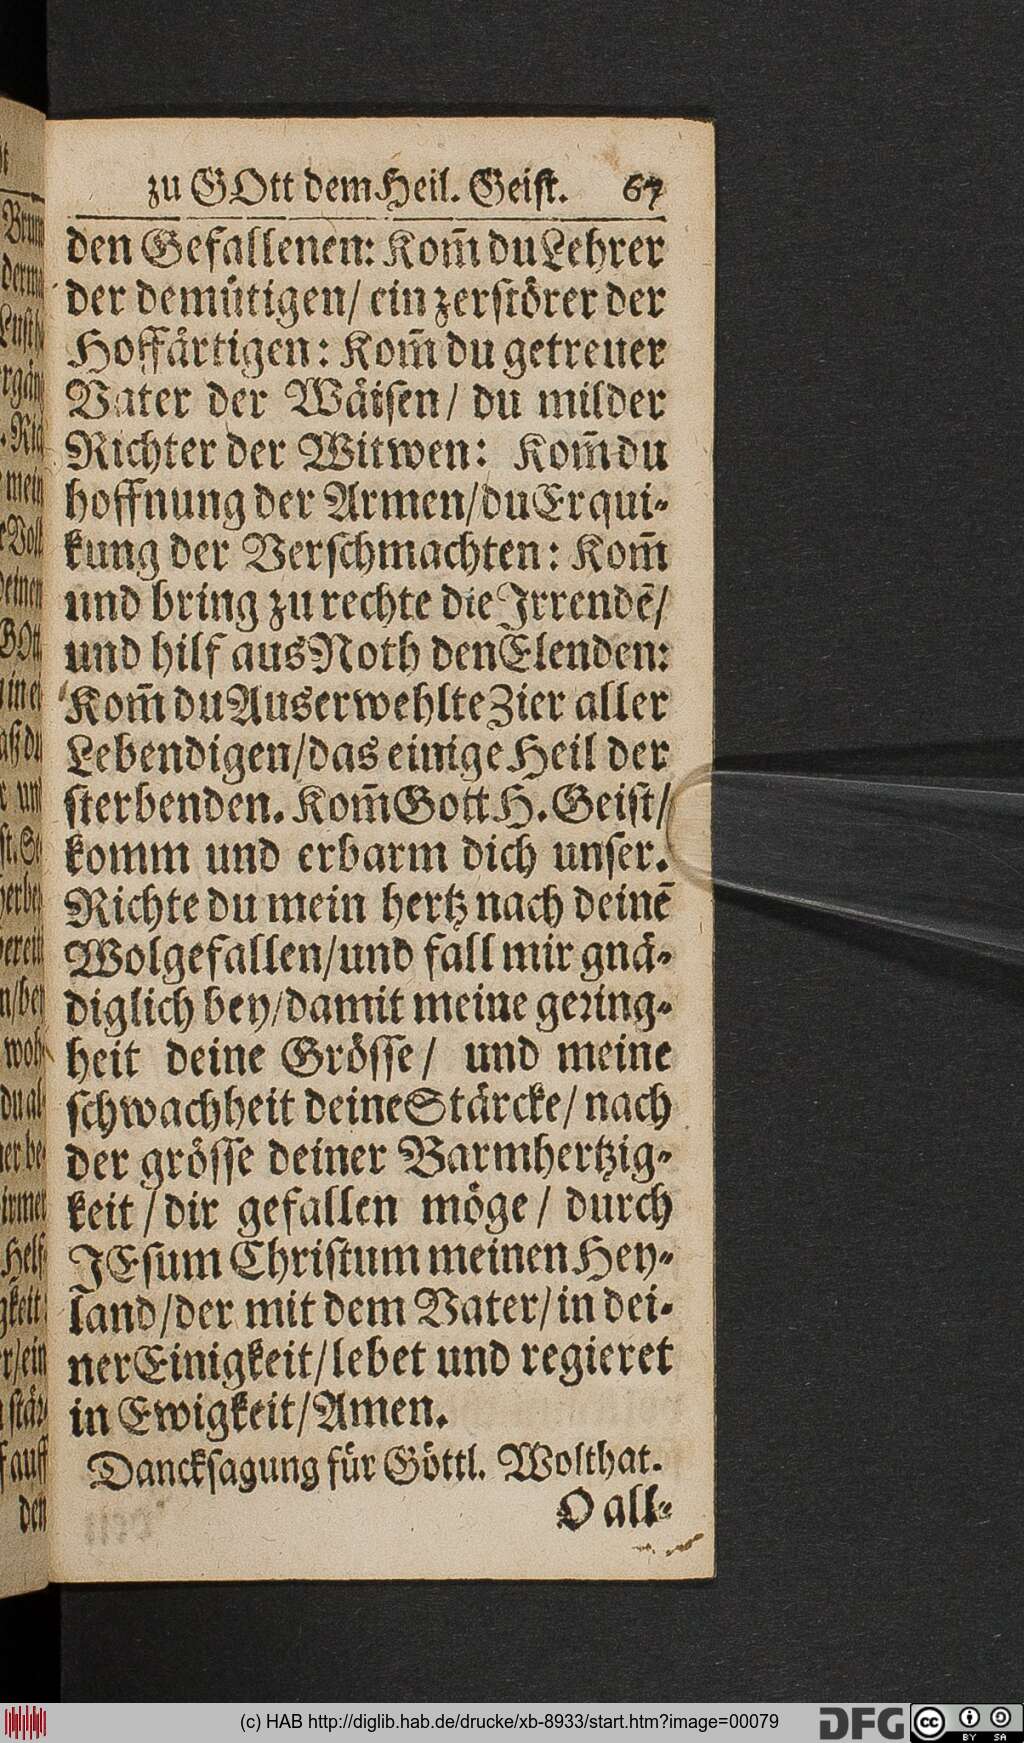 zu GOtt dem Heil. Geist. 67
den Gefallenen: Kom̃ du Lehrer
der demütigen/ ein zerstörer der
Hoffärtigen: Kom̃ du getreuer
Vater der Wäisen/ du milder
Richter der Witwen: Kom̃ du
hoffnung der Armen/du Erqui-
kung der Verschmachten: Kom̃
und bring zu rechte die Irrendē/
und hilf aus Noth den Elenden:
Kom̃ du Auserwehlte Zier aller
Lebendigen/das einige Heil der
sterbenden. Kom̃ Gott H. Geist/
komm und erbarm dich unser.
Richte du mein hertz nach deinē
Wolgefallen/und fall mir gnä-
diglich bey/damit meine gering-
heit deine Grösse/ und meine
schwachheit deine Stärcke/ nach
der grösse deiner Barmhertzig-
keit/dir gefallen möge/ durch
JEsum Christum meinen Hey-
land/der mit dem Vater/in dei-
ner Einigkeit/lebet und regieret
in Ewigkeit/Amen.
Dancksagung für Göttl. Wolthat.
O all-
(c) HAB http://diglib.hab.de/drucke/xb-8933/start.htm?image=00079
DFG
cc BY SA